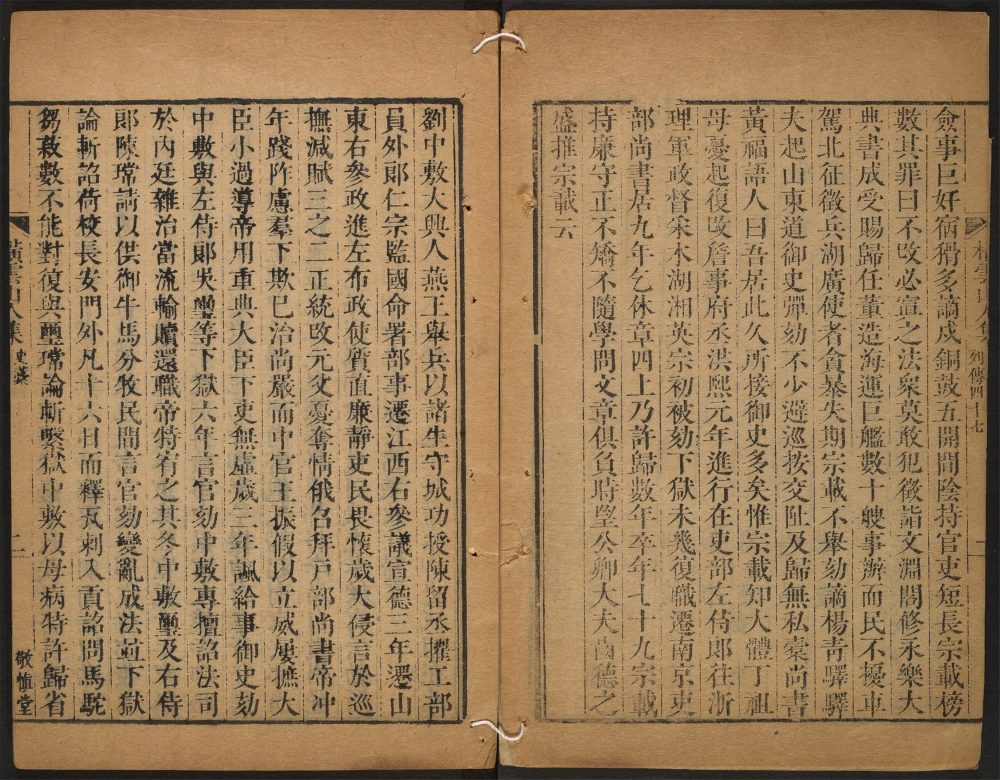 僉事巨奸宿猾多謫戍銅鼓五開間陰持官吏短長宗載榜
數其罪曰不改必寘之法衆莫敢犯徵詣文淵閣修永樂大
典書成受賜歸任董造海運巨艦數十艘事辦而民不擾車
駕北征徵兵湖廣使者貪暴失期宗載不舉劾謫楊青驛驛
夫起山東道御史彈劾不少避巡按交阯及歸無私橐尚書
黃福語人曰吾居此久所接御史多矣惟宗載知大體丁祖
母憂起復改詹事府丞洪熙元年進行在吏部左侍郎往浙
理軍政督采木湖湘英宗初被劾下獄未幾復職遷南京吏
部尚書居九年乞休章四上乃許歸數年卒年七十九宗載
持廉守正不矯不隨學問文章俱負時望公卿大夫齒德之
盛推宗載云
列傳四十七
劉中敷大興人燕王舉兵以諸生守城功授陳留丞擢工部
員外郎仁宗監國命署部事遷江西右參議宣德三年遷山
東右參政進左布政使質直廉靜吏民畏懷歲大侵言於巡
撫減賦三之二正統改元父憂奪情俄召拜戶部尚書帝冲
年踐阼慮羣下欺已治尚嚴而中官王振假以立威屢摭大
臣小過導帝用重典大臣下吏無虛歲三年諷給事御史劾
中敷與左侍郎吳璽等下獄六年言官劾中敷專擅詔法司
於內廷雜治當流輸贖還職帝特宥之其冬中敷璽及右侍
郎陳瑺請以供御牛馬分牧民間言官劾變亂成法並下獄
論斬詔荷校長安門外凡十六日而釋瓦剌入貢詔問馬駝
芻菽數不能對復與璽瑺論斬繫獄中敷以母病特許歸省
橫雲山人集
史藁
二
敬慎堂